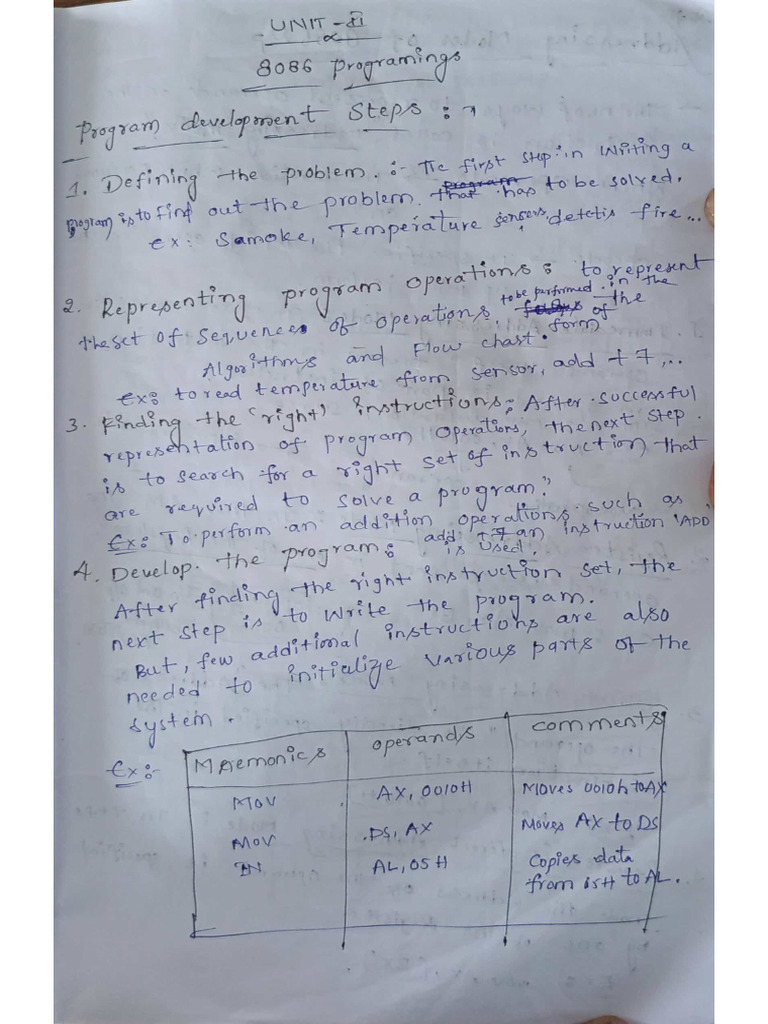 UNIT - II
8086 Programings
Program development Steps :-
1. Defining the problem. :- The first step in Writing a
program is to find out the problem that has to be solved.
Ex: Samoke, Temperature sensers, detctis fire...
2. Representing program Operations: to represent
the set of sequence of operations to be performed in the
form of the
Algorithms and Flow chart.
Ex: to read temperature from sensor, add + 7,...
3. Finding the 'right' instructions: After successful
representation of program Operations, the next step
is to search for a right set of instruction that
are required to solve a program."
Ex: To perform an addition operations such as
add +7 an instruction 'ADD'
is used.
4. Develop the program:
After finding the right instruction set, the
next step is to Write the program.
But, few additional instructions are also
needed to initialize various parts of the
system.
Ex:-
Mnemonics operands comments
MOV AX, 0010H Moves 0010h to AX
MOV DS, AX Moves AX to DS
IN AL, 05H Copies data
from 05H to AL.